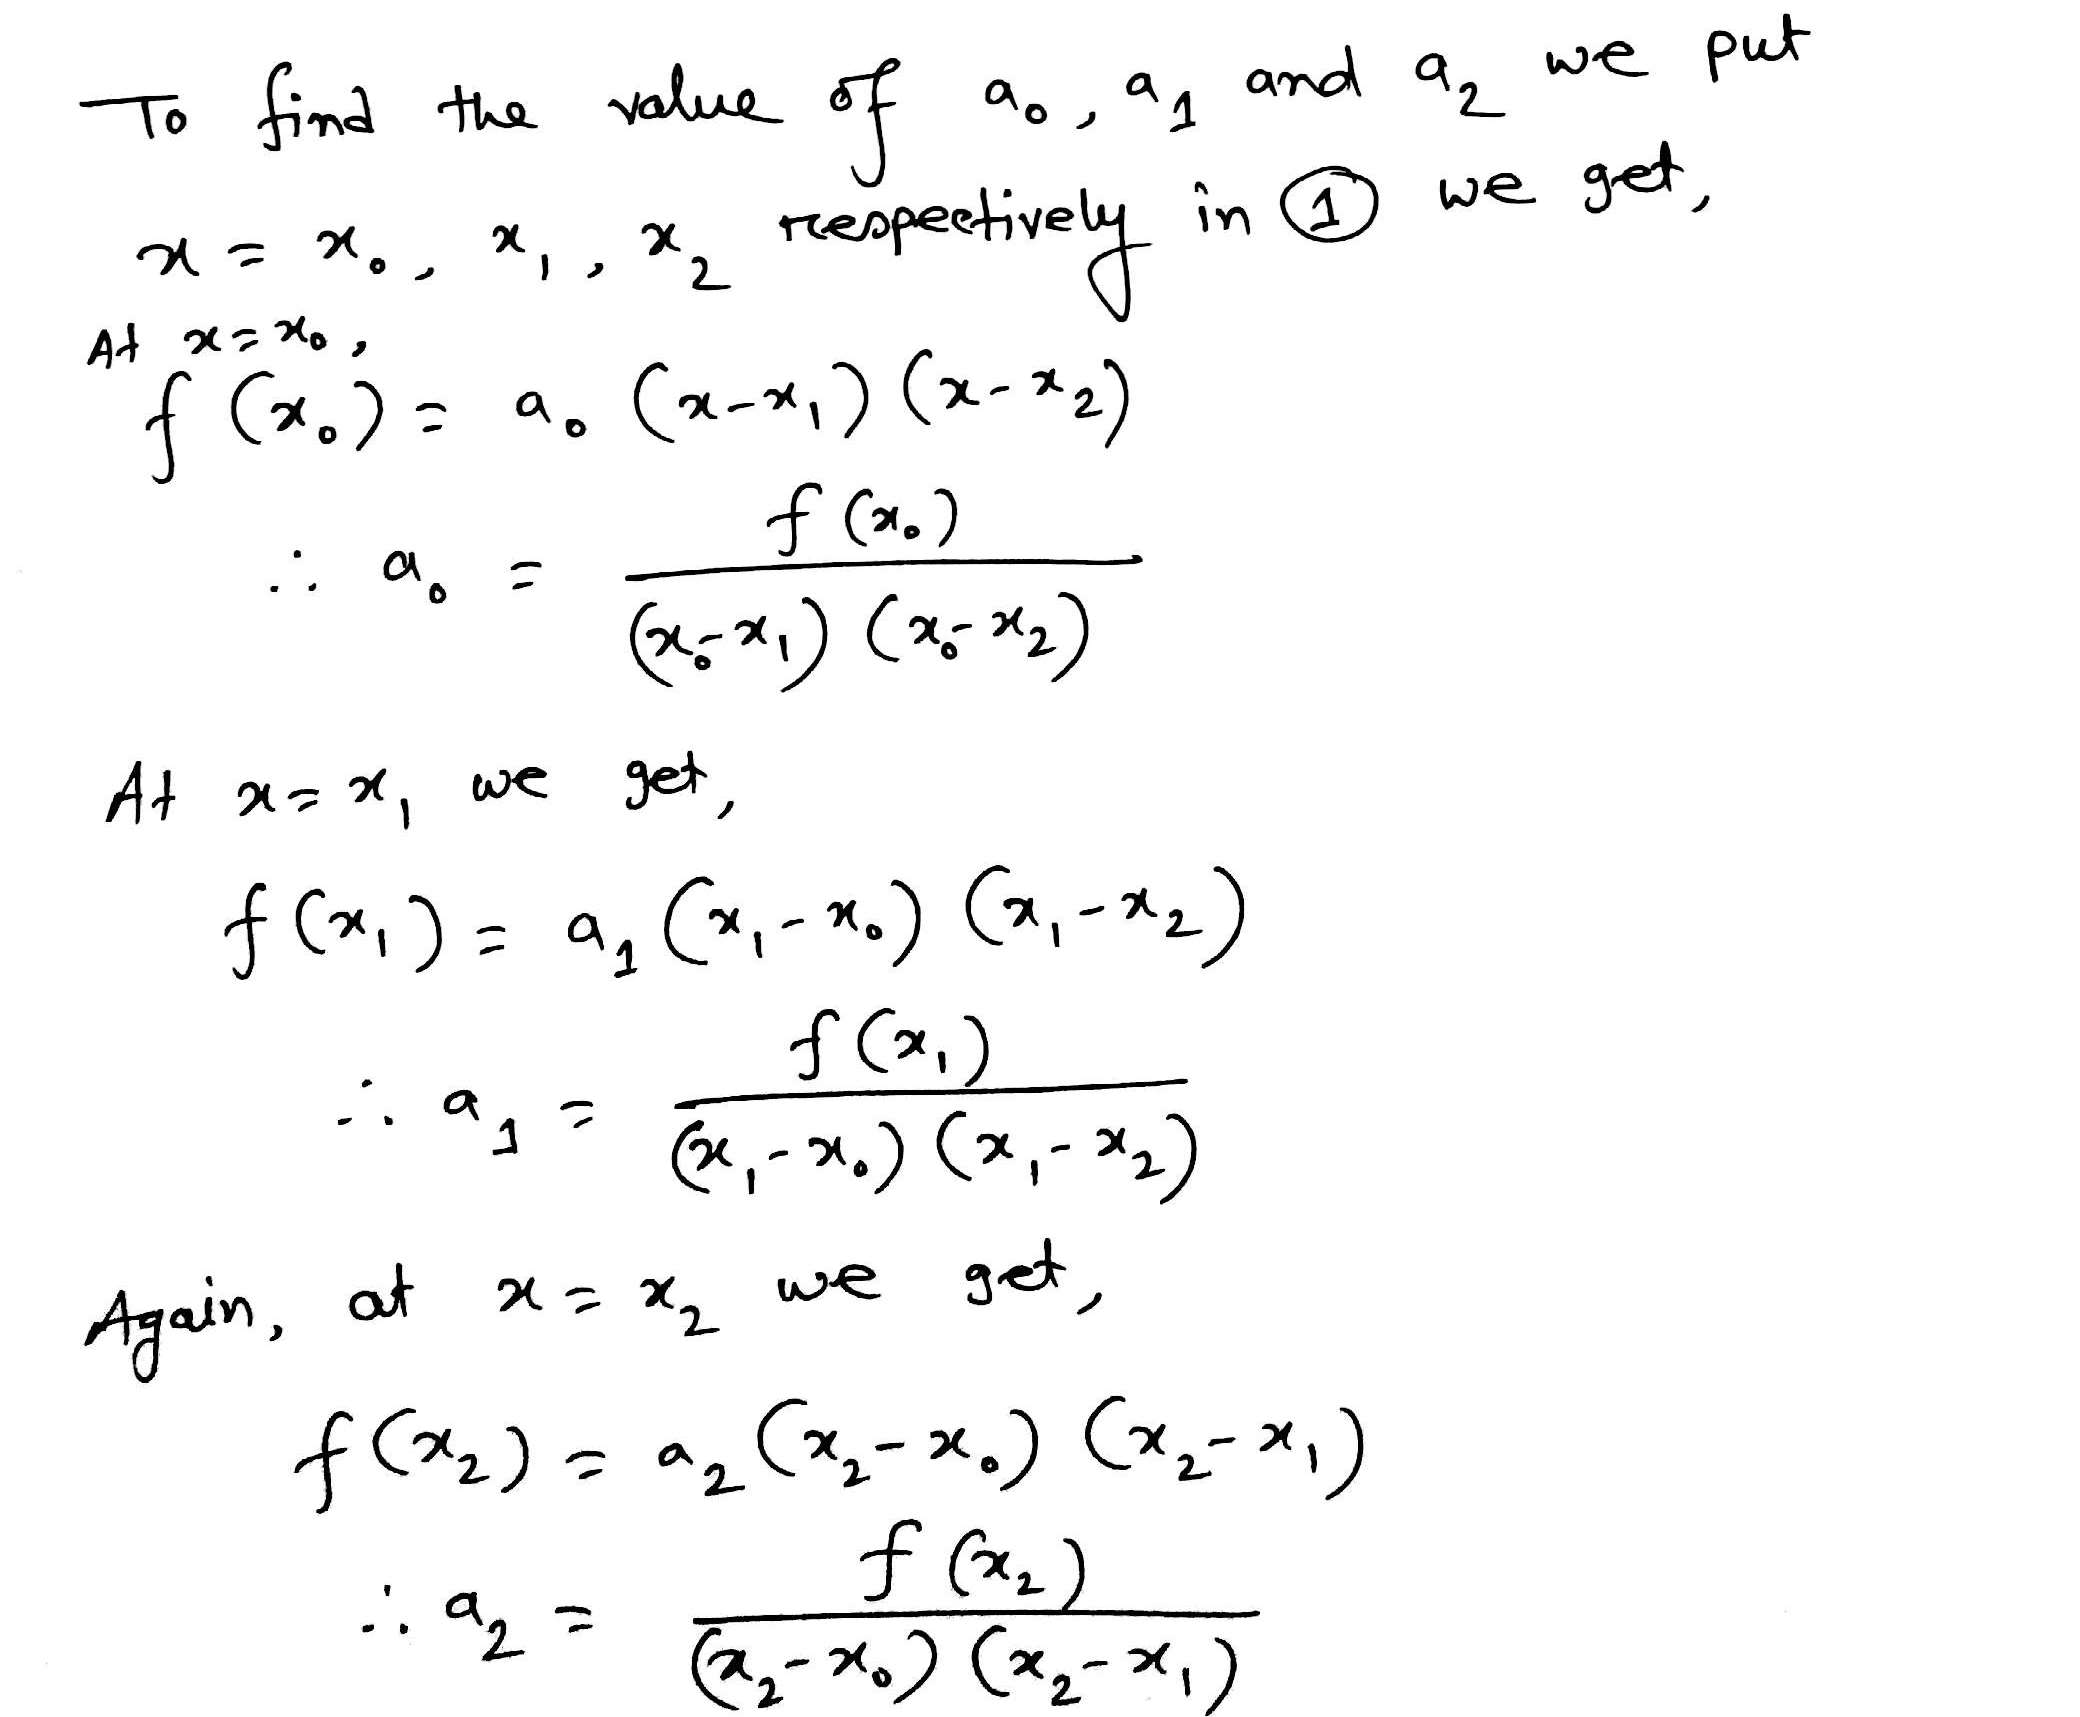 To find the value of a₀, a₁ and a₂ we put
x = x₀, x₁, x₂ respectively in ① we get,
At x = x₀,
f(x₀) = a₀ (x-x₁) (x-x₂)
∴ a₀ = f(x₀) / (x₀-x₁) (x₀-x₂)
At x = x₁ we get,
f(x₁) = a₁ (x₁-x₀) (x₁-x₂)
∴ a₁ = f(x₁) / (x₁-x₀) (x₁-x₂)
Again, at x = x₂ we get,
f(x₂) = a₂ (x₂-x₀) (x₂-x₁)
∴ a₂ = f(x₂) / (x₂-x₀) (x₂-x₁)